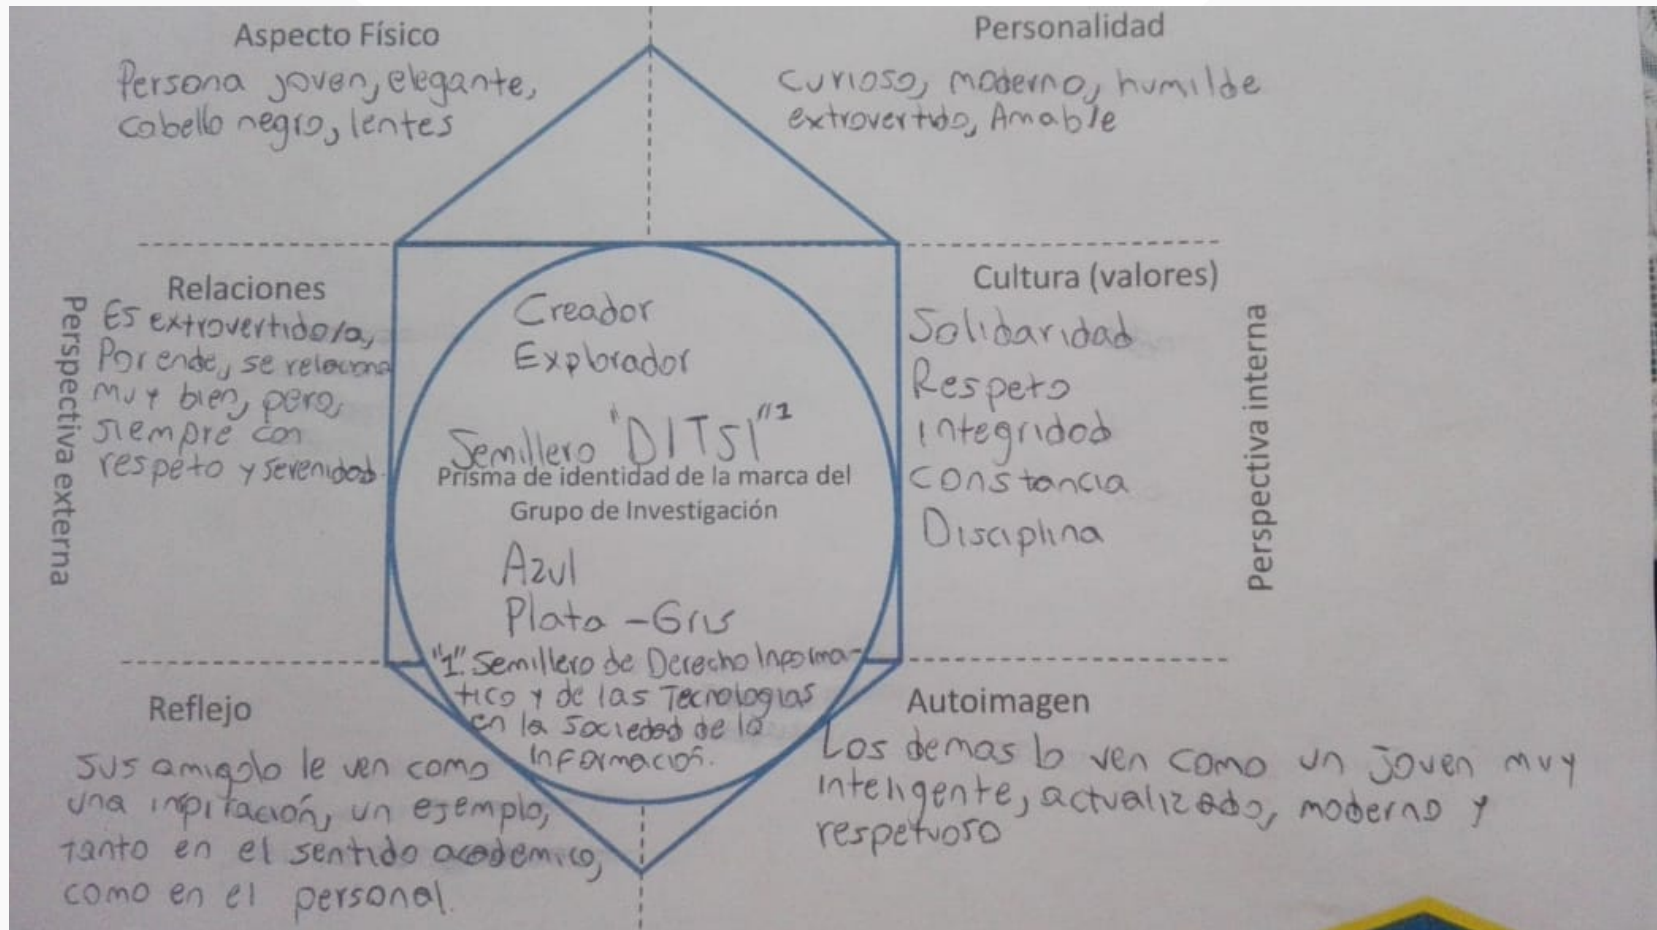 Aspecto Físico
Persona joven, elegante,
cabello negro, lentes
Personalidad
curioso, moderno, humilde
extrovertido, Amable
Perspectiva externa
Relaciones
Es extrovertido/a,
Por ende, se relaciona
muy bien, pero,
siempre con
respeto y serenidad
Creador
Explorador
Semillero "DITSI""1
Prisma de identidad de la marca del
Grupo de Investigación
Azul
Plata - Gris
"1". Semillero de Derecho Informa-
tico y de las Tecnologias
en la Sociedad de la
Información.
Cultura (valores)
Solidaridad
Respeto
integridad
constancia
Disciplina
Perspectiva interna
Reflejo
Sus amigolo le ven como
una inpiración, un ejemplo,
tanto en el sentido academico,
como en el personal.
Autoimagen
Los demas lo ven como un joven muy
inteligente, actualizado, moderno y
respetuoso